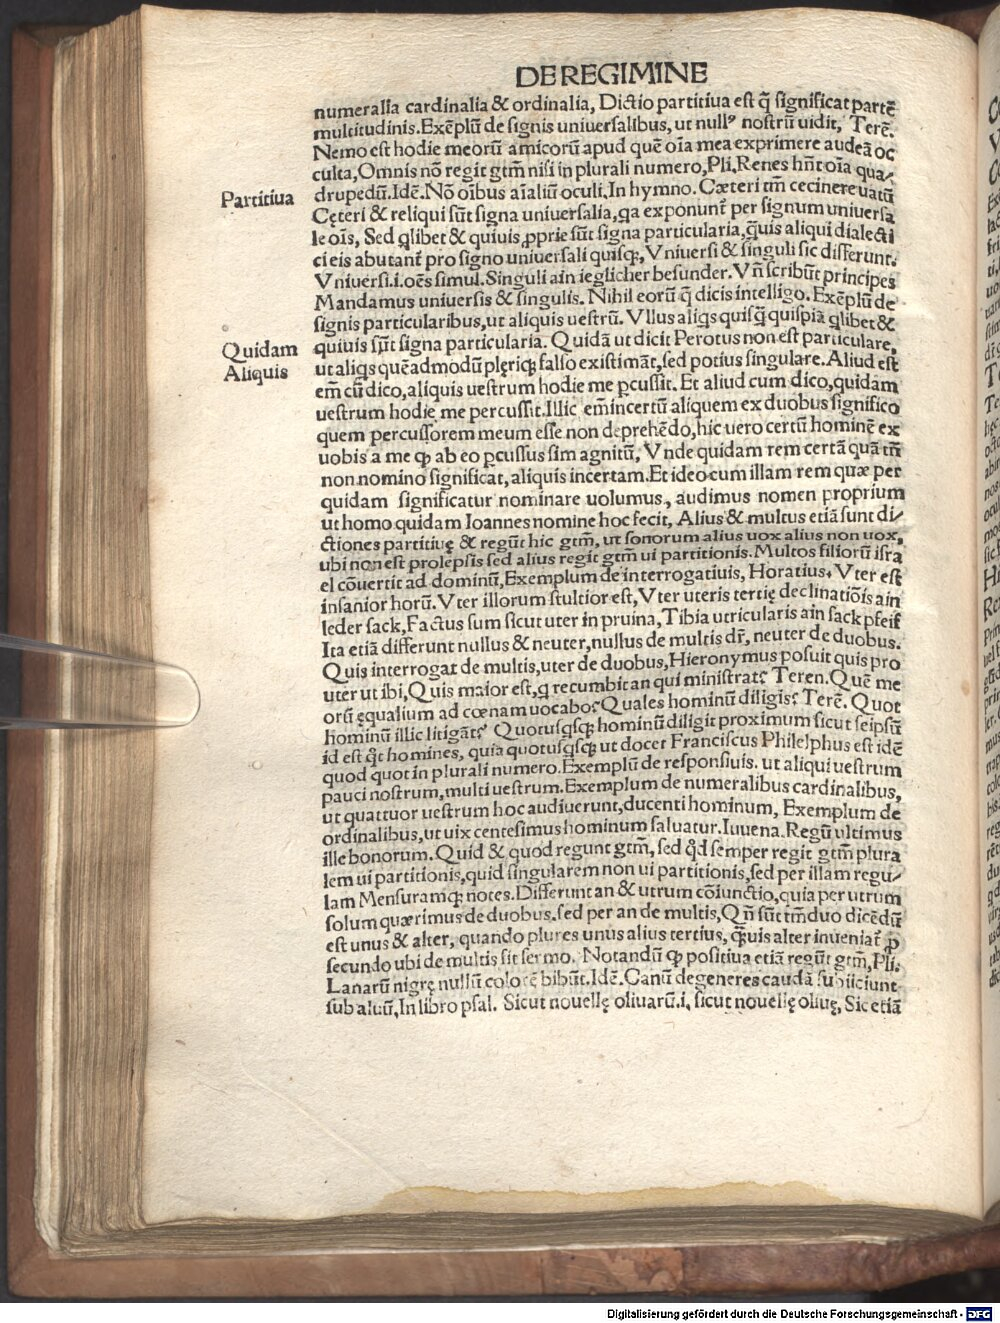 DE REGIMINE
numeralia cardinalia & ordinalia, Dictio partitiua est q̃ significat partẽ
multitudinis.Exẽplũ de signis uniuersalibus, ut nullꝰ nostrũ uidit, Terẽ.
Nemo est hodie meorũ amicorũ apud quẽ oĩa mea exprimere audeã oc
culta,Omnis nõ regit gtm̃ nisi in plurali numero,Pli.Renes hñt oĩa qua/
Partitiua
drupedũ.Idẽ.Nõ oĩbus aĩaliũ oculi.In hymno.Cæteri tm̃ cecinere uatũ
Cęteri & reliqui sũt signa uniuersalia,qa exponunt̃ per signum uniuersa
le oĩs, Sed qlibet & quiuis ꝓprie sũt signa particularia,q̃uis aliqui dialecti
ci eis abutant̃ pro signo uniuersali quisqꝫ, Vniuersi & singuli sic differunt.
Vniuersi.i.oẽs simul.Singuli ain ieglicher besunder.Vñ scribũt principes
Mandamus uniuersis & singulis. Nihil eorũ q̃ dicis intelligo.Exẽplũ de
signis particularibus,ut aliquis uestrũ. Vllus aliqs quisq̃ quispiã qlibet &
Quidam
quiuis sũt signa particularia. Quidã ut dicit Perotus non est particulare,
Aliquis
ut aliqs quẽadmodũ plęriqꝫ falso existimãt,sed potius singulare.Aliud est
em̃ cũ dico,aliquis uestrum hodie me ꝑcussit. Et aliud cum dico,quidam
uestrum hodie me percussit.Illic em̃ incertũ aliquem ex duobus significo
quem percussorem meum esse non deprehẽdo,hic uero certũ hominẽ ex
uobis a me ꝙ ab eo ꝑcussus sim agnitũ, Vnde quidam rem certã quã tm̃
non nomino significat, aliquis incertam.Et ideo cum illam rem quæ per
quidam significatur nominare uolumus, audimus nomen proprium
ut homo quidam Ioannes nomine hoc fecit, Alius & multus etiã sunt di/
ctiones partitiuę & regũt hic gtm̃, ut sonorum alius uox alius non uox,
ubi non est prolepsis sed alius regit gtm̃ ui partitionis.Multos filiorũ isra
el cõuertit ad dominũ,Exemplum de interrogatiuis, Horatius. Vter est
insanior horũ.Vter illorum stultior est,Vter uteris tertię declinatiõis ain
leder sack,Factus sum sicut uter in pruina,Tibia utricularis ain sack pfeif
Ita etiã differunt nullus & neuter,nullus de multis dr̃, neuter de duobus.
Quis interrogat de multis,uter de duobus,Hieronymus posuit quis pro
uter ut ibi,Quis maior est,q recumbit an qui ministrat? Teren.Quẽ me
orũ ęqualium ad cœnam uocabo?Quales hominũ diligis? Terẽ. Quot
hominũ illic litigãt? Quotusqsqꝫ hominũ diligit proximum sicut seipsũ
id est q̃t homines, quia quotusqsqꝫ ut docet Franciscus Philelphus est idẽ
quod quot in plurali numero.Exemplũ de responsiuis. ut aliqui uestrum
pauci nostrum,multi uestrum.Exemplum de numeralibus cardinalibus,
ut quattuor uestrum hoc audiuerunt,ducenti hominum, Exemplum de
ordinalibus,ut uix centesimus hominum saluatur.Iuuena.Regũ ultimus
ille bonorum.Quid & quod regunt gtm̃, sed qd̃ semper regit gtm̃ plura
lem ui partitionis,quid singularem non ui partitionis,sed per illam regu/
lam Mensuramqꝫ notes.Differunt an & utrum cõiunctio,quia per utrum
solum quærimus de duobus.sed per an de multis,Qñ sũt tm̃ duo dicẽdũ
est unus & alter, quando plures unus alius tertius, q̃uis alter inueniat̃ ꝓ
secundo ubi de multis fit sermo. Notandũ ꝙ positiua etiã regũt gtm̃,Pli.
Lanarũ nigrę nullũ colorẽ bibũt.Idẽ.Canũ degeneres caudã subijciunt
sub aluũ,In libro psal. Sicut nouellę oliuarũ.i, sicut nouellę oliuę, Sic etiã
Digitalisierung gefördert durch die Deutsche Forschungsgemeinschaft - DFG